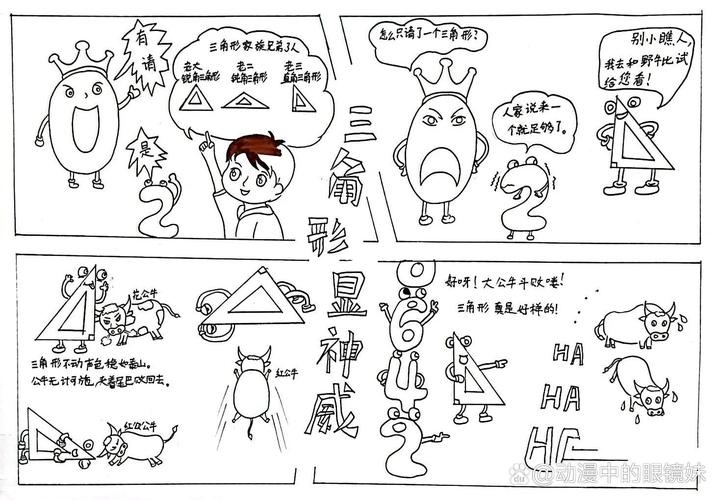 有请
是
三角形家族兄弟3人
老大 老二 老三
锐角三角形 钝角三角形 直角三角形
三角形
显神威
怎么只请了一个三角形?
人家说来一
个就足够了。
别小瞧人,
我去和野牛比试
给您看!
花公牛
三角形不动声色,稳如泰山。
公牛无计可施,夹着尾巴败回去。
红公牛
好呀!大公牛斗败喽!
三角形真是好样的!
HA
HA
HA
@动漫中的眼镜妹